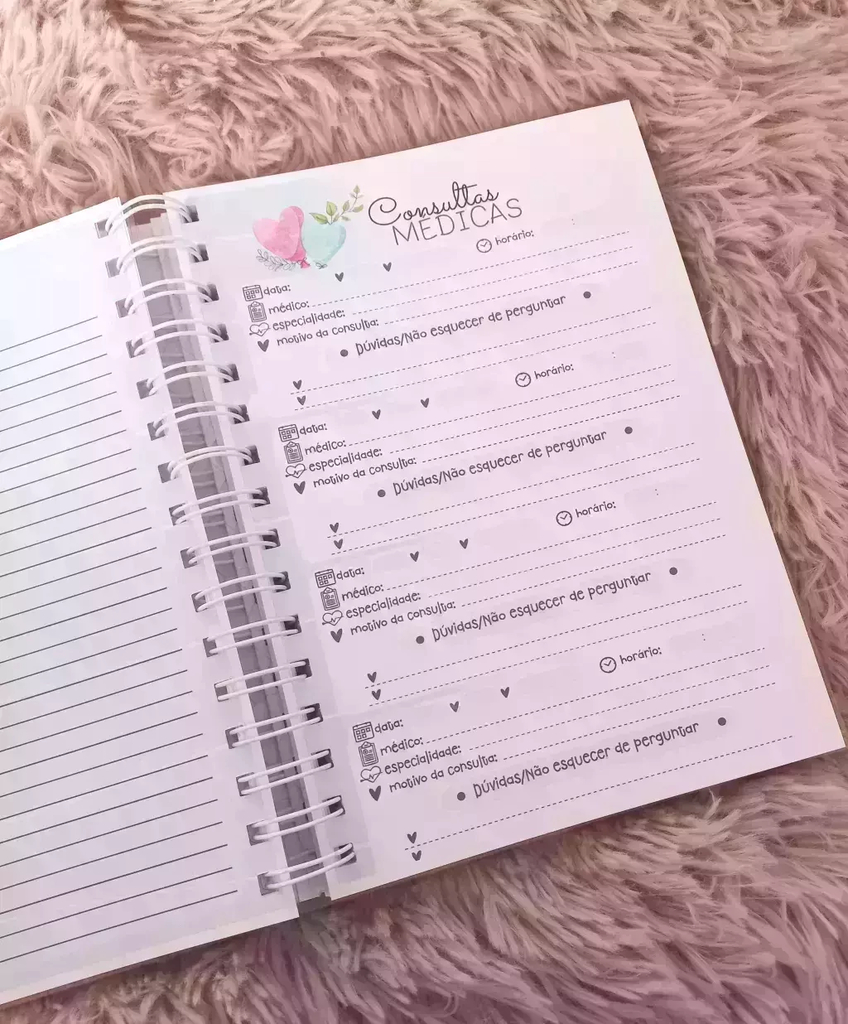 Consultas
MÉDICAS
data: horário: :
médico:
especialidade:
motivo da consulta:
Dúvidas/Não esquecer de perguntar
data: horário: :
médico:
especialidade:
motivo da consulta:
Dúvidas/Não esquecer de perguntar
data: horário: :
médico:
especialidade:
motivo da consulta:
Dúvidas/Não esquecer de perguntar
data: horário: :
médico:
especialidade:
motivo da consulta:
Dúvidas/Não esquecer de perguntar